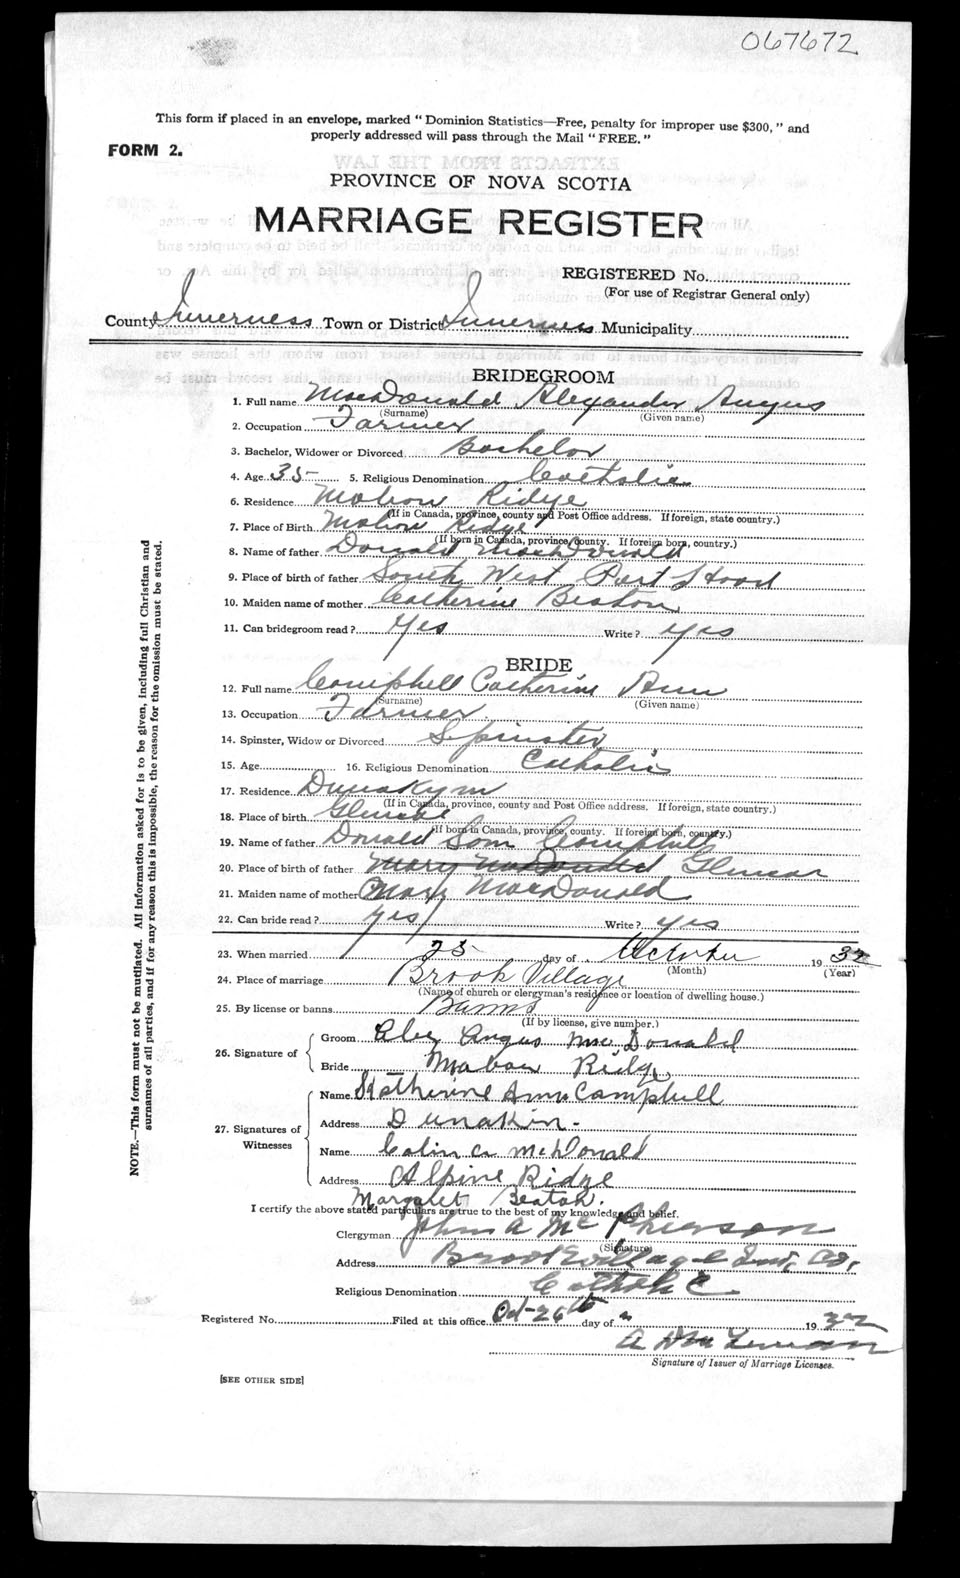 067672
This form if placed in an envelope, marked "Dominion Statistics—Free, penalty for improper use $300," and
properly addressed will pass through the Mail "FREE."
FORM 2.
PROVINCE OF NOVA SCOTIA
MARRIAGE REGISTER
REGISTERED No.
(For use of Registrar General only)
County Inverness Town or District Inverness Municipality
BRIDEGROOM
1. Full name MacDonald Alexander Angus
(Surname) (Given name)
2. Occupation Farmer
3. Bachelor, Widower or Divorced Bachelor
4. Age 35 5. Religious Denomination Catholic
6. Residence Mabou Ridge
(If in Canada, province, county and Post Office address. If foreign, state country.)
7. Place of Birth Mabou Ridge
(If born in Canada, province, county. If foreign born, country.)
8. Name of father Donald MacDonald
9. Place of birth of father South West Port Hood
10. Maiden name of mother Catherine Beaton
11. Can bridegroom read? Yes Write? yes
BRIDE
12. Full name Campbell Catherine Ann
(Surname) (Given name)
13. Occupation Farmer
14. Spinster, Widow or Divorced Spinster
15. Age 16. Religious Denomination Catholic
17. Residence Dunakyn
(If in Canada, province, county and Post Office address. If foreign, state country.)
18. Place of birth
(If born in Canada, province, county. If foreign born, country.)
19. Name of father Donald Campbell
20. Place of birth of father Mary MacDonald
21. Maiden name of mother Mary MacDonald
22. Can bride read? yes Write? yes
23. When married 25 day of October 1932
(Month) (Year)
24. Place of marriage Brook Village
(Name of church or clergyman's residence or location of dwelling house.)
25. By license or banns Banns
(If by license, give number.)
26. Signature of
Groom Alex Angus McDonald
Bride Mabou Ridge
27. Signatures of Witnesses
Name Katherine Ann Campbell
Address Dunakin
Name Colin McDonald
Address Alpine Ridge
Margaret Beaton.
I certify the above stated particulars are true to the best of my knowledge and belief.
Clergyman John A McPherson
(Signature)
Address Brook Village Inv. Co.
Religious Denomination Catholic
Registered No. Filed at this office Oct-26th day of 1932
Signature of Issuer of Marriage Licenses.
[SEE OTHER SIDE]
NOTE.—This form must not be mutilated. All information asked for is to be given, including full Christian and
surnames of all parties, and if for any reason this is impossible, the reason for the omission must be stated.